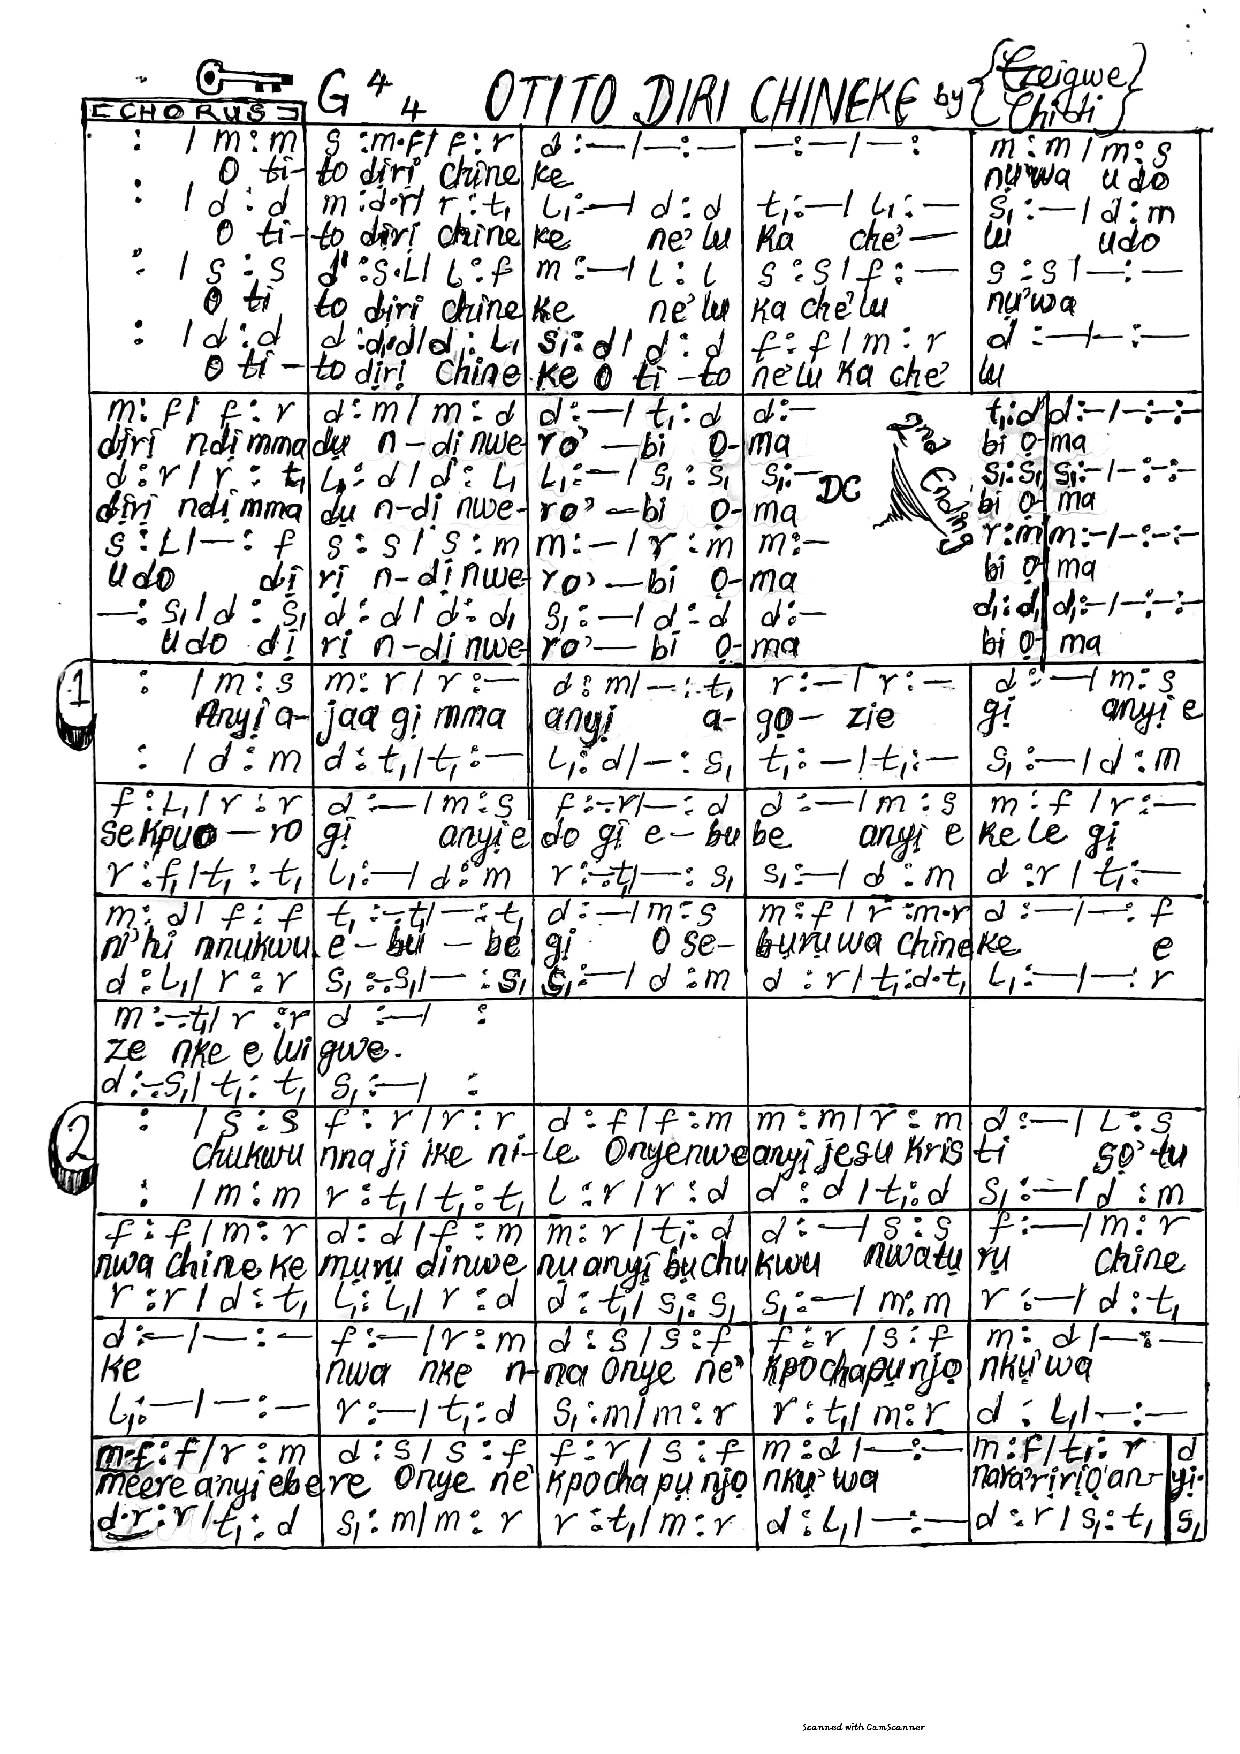 G 4 4 OTITO DIRI CHINEKE by {Ezeigwe Chidi}
CHORUS
: / m : m | s : m·f / f : r | d : — / — : — | — : — / — : | m : m / m : s
O ti- | to diri chine | ke | | nụ'wa udo
: / d : d | m : d·r / r : t₁ | L₁ : — / d : d | t₁ : — / L₁ : — | s₁ : — / d : m
O ti- | to diri chine | ke ne'lu | ka che'— | lu udo
: / s : s | d' : s·L / L : f | m : — / L : L | s : s / f : — | s : s / — : —
O ti | to diri chine | ke ne'lu | ka che'lu | nụ'wa
: / d : d | d : d·d / d : L₁ | s₁ : d / d : d | f : f / m : r | d : — / — : —
O ti- | to dịrị chine | ke O ti-to | ne'lu ka che' | lu
m : f / f : r | d : m / m : d | d : — / t₁ : d | d : — | t₁ : d | d : — / — : — : —
dịrị ndị mma | dụ n-dị nwe- | ro' — bi ọ- | ma | 2nd Ending | bi ọ- | ma
d : r / r : t₁ | L₁ : d / d : L₁ | L₁ : — / s₁ : s₁ | s₁ : — DC | s₁ : s₁ | s₁ : — / — : — : —
dịrị ndị mma | dụ n-dị nwe- | ro' — bi ọ- | ma | bi ọ- | ma
s : L / — : f | s : s / s : m | m : — / r : m | m : — | r : m | m : — / — : — : —
udo dị | rị n-dị nwe- | ro' — bi ọ- | ma | bi ọ- | ma
— : s₁ / d : s₁ | d : d / d : d₁ | s₁ : — / d : d | d : — | d₁ : d₁ | d₁ : — / — : — : —
udo dị | rị n-dị nwe | ro' — bi ọ- | ma | bi ọ- | ma
1
: / m : s | m : r / r : — | d : m / — : t₁ | r : — / r : — | d : — / m : s
Anyị a- | jaa gị mma | anyị a- | go- zie | gị anyị e
: / d : m | d : t₁ / t₁ : — | L₁ : d / — : s₁ | t₁ : — / t₁ : — | s₁ : — / d : m
f : L₁ / r : r | d : — / m : s | f : -·r / — : d | d : — / m : s | m : f / r : —
se kpuo — ro | gị anyị e | do gị e- bu | be anyị e | ke le gị
r : f₁ / t₁ : t₁ | L₁ : — / d : m | r : -·t₁ / — : s₁ | s₁ : — / d : m | d : r / t₁ : —
m : d / f : f | t₁ : -·t₁ / — : t₁ | d : — / m : s | m : f / r : m·r | d : — / — : f
ni'hi nnukwu | e- bu — be | gị O se- | bụrụ wa chine | ke e
d : L₁ / r : r | s₁ : -·s₁ / — : s₁ | s₁ : — / d : m | d : r / t₁ : d·t₁ | L₁ : — / — : r
m : -·t₁ / r : r | d : — / :
ze nke e lui | gwe.
d : -·s₁ / t₁ : t₁ | s₁ : — / :
2
: / s : s | f : r / r : r | d : f / f : m | m : m / r : m | d : — / L : s
chukwu | nna ji ike ni- | le Onyenwe | anyị jesu kris | ti sọ'tu
: / m : m | r : t₁ / t₁ : t₁ | L : r / r : d | d : d / t₁ : d | s₁ : — / d : m
f : f / m : r | d : d / f : m | m : r / t₁ : d | d : — / s : s | f : — / m : r
nwa chine ke | mụrụ dinwe | nụ anyị bụ chu | kwu nwatụ | rụ chine
r : r / d : t₁ | L₁ : L₁ / r : d | d : t₁ / s₁ : s₁ | s₁ : — / m : m | r : — / d : t₁
d : — / — : — | f : — / r : m | d : s / s : f | f : r / s : f | m : d / — : —
ke | nwa nke n- | na Onye ne' | kpochapụ njọ | nkụ'wa
L₁ : — / — : — | r : — / t₁ : d | s₁ : m / m : r | r : t₁ / m : r | d : L₁ / — : —
m·f : f / r : m | d : s / s : f | f : r / s : f | m : d / — : — | m : f / t₁ : r | d
meere anyị ebe | re Onye ne' | kpocha pụ njọ | nkụ'wa | nara'rịrịọ'an- | yị.
d·r : r / t₁ : d | s₁ : m / m : r | r : t₁ / m : r | d : L₁ / — : — | d : r / s₁ : t₁ | s₁
Scanned with CamScanner